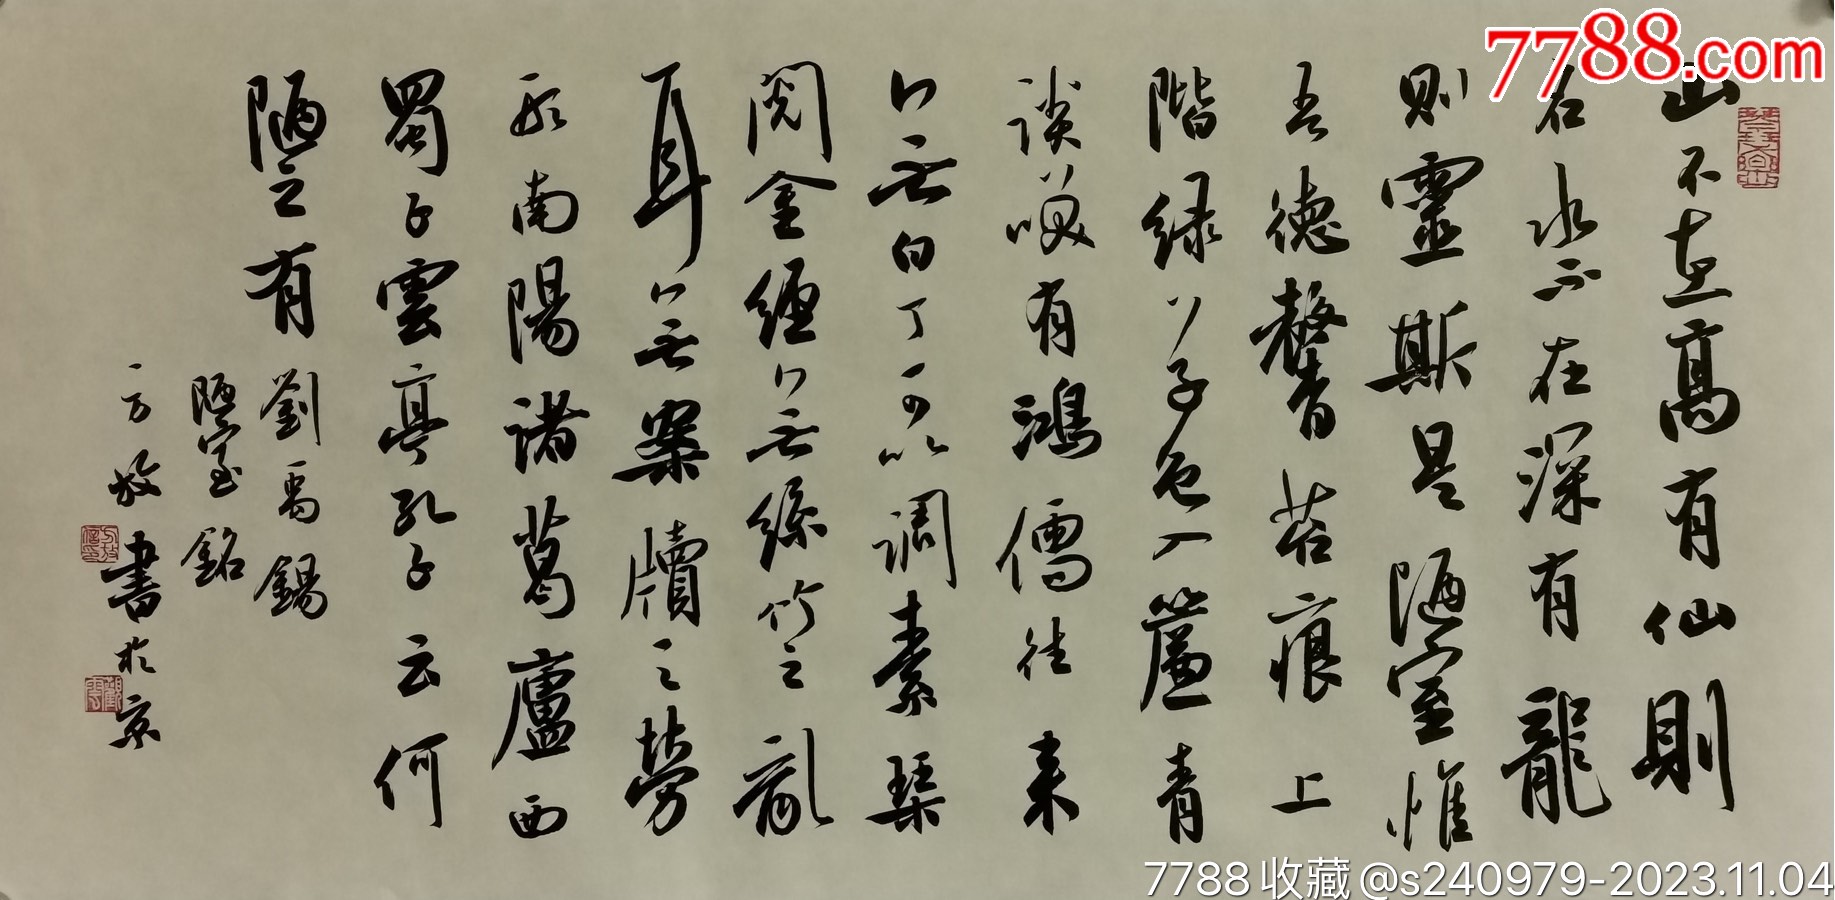 山不在高有仙則
名水不在深有龍
则靈斯是陋室惟
吾德馨苔痕上
階绿草色入簾青
談笑有鴻儒往来
無白丁可以調素琴
閲金經無絲竹之亂
耳無案牘之勞
形南陽諸葛廬西
蜀子雲亭孔子云何
陋之有
劉禹錫
陋室銘
方放書於京
7788.com
7788收藏@s240979-2023.11.04